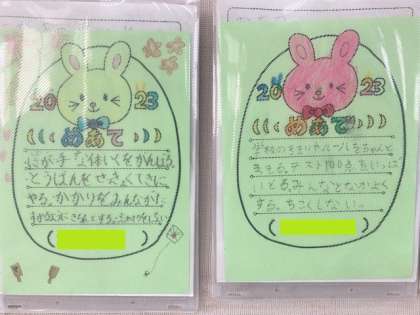 20 23
めあて
にが手な体いくをがんばる。
とうばんをせっきょくてきに
やる。かかりをみんながん
20 23
めあて
学校のきまりやルールをちゃんと
まもる。テスト100点をいっぱ
いとる。みんなとなかよく
する。ちこくしない。